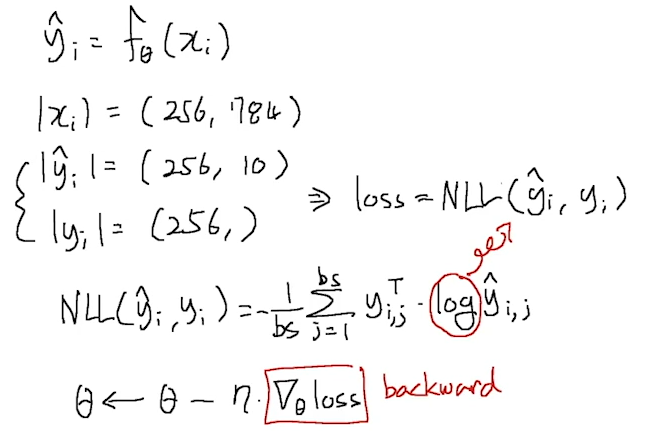 ŷᵢ = f̂_θ(xᵢ)
|xᵢ| = (256, 784)
|ŷᵢ| = (256, 10)
|yᵢ| = (256,)
⇒ loss = NLL(ŷᵢ, yᵢ)
NLL(ŷᵢ, yᵢ) = -1/bs Σ_{j=1}^{bs} y_{i,j}^T · log ŷ_{i,j}
θ ← θ - η · ∇_θ loss backward